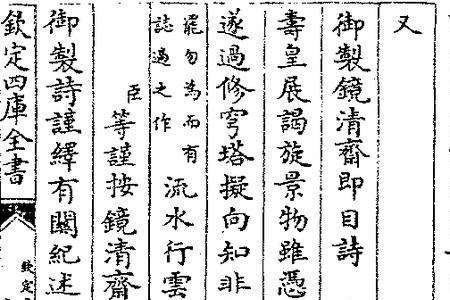 又
御製鏡清齋即目詩
壽皇展謁旋景物雖憑
遂過修穹塔擬向知非
罷勿為而有
誌過之作
流水行雲
臣等謹按鏡清齋
御製詩謹繹有關紀述
欽定四庫全書
欽定